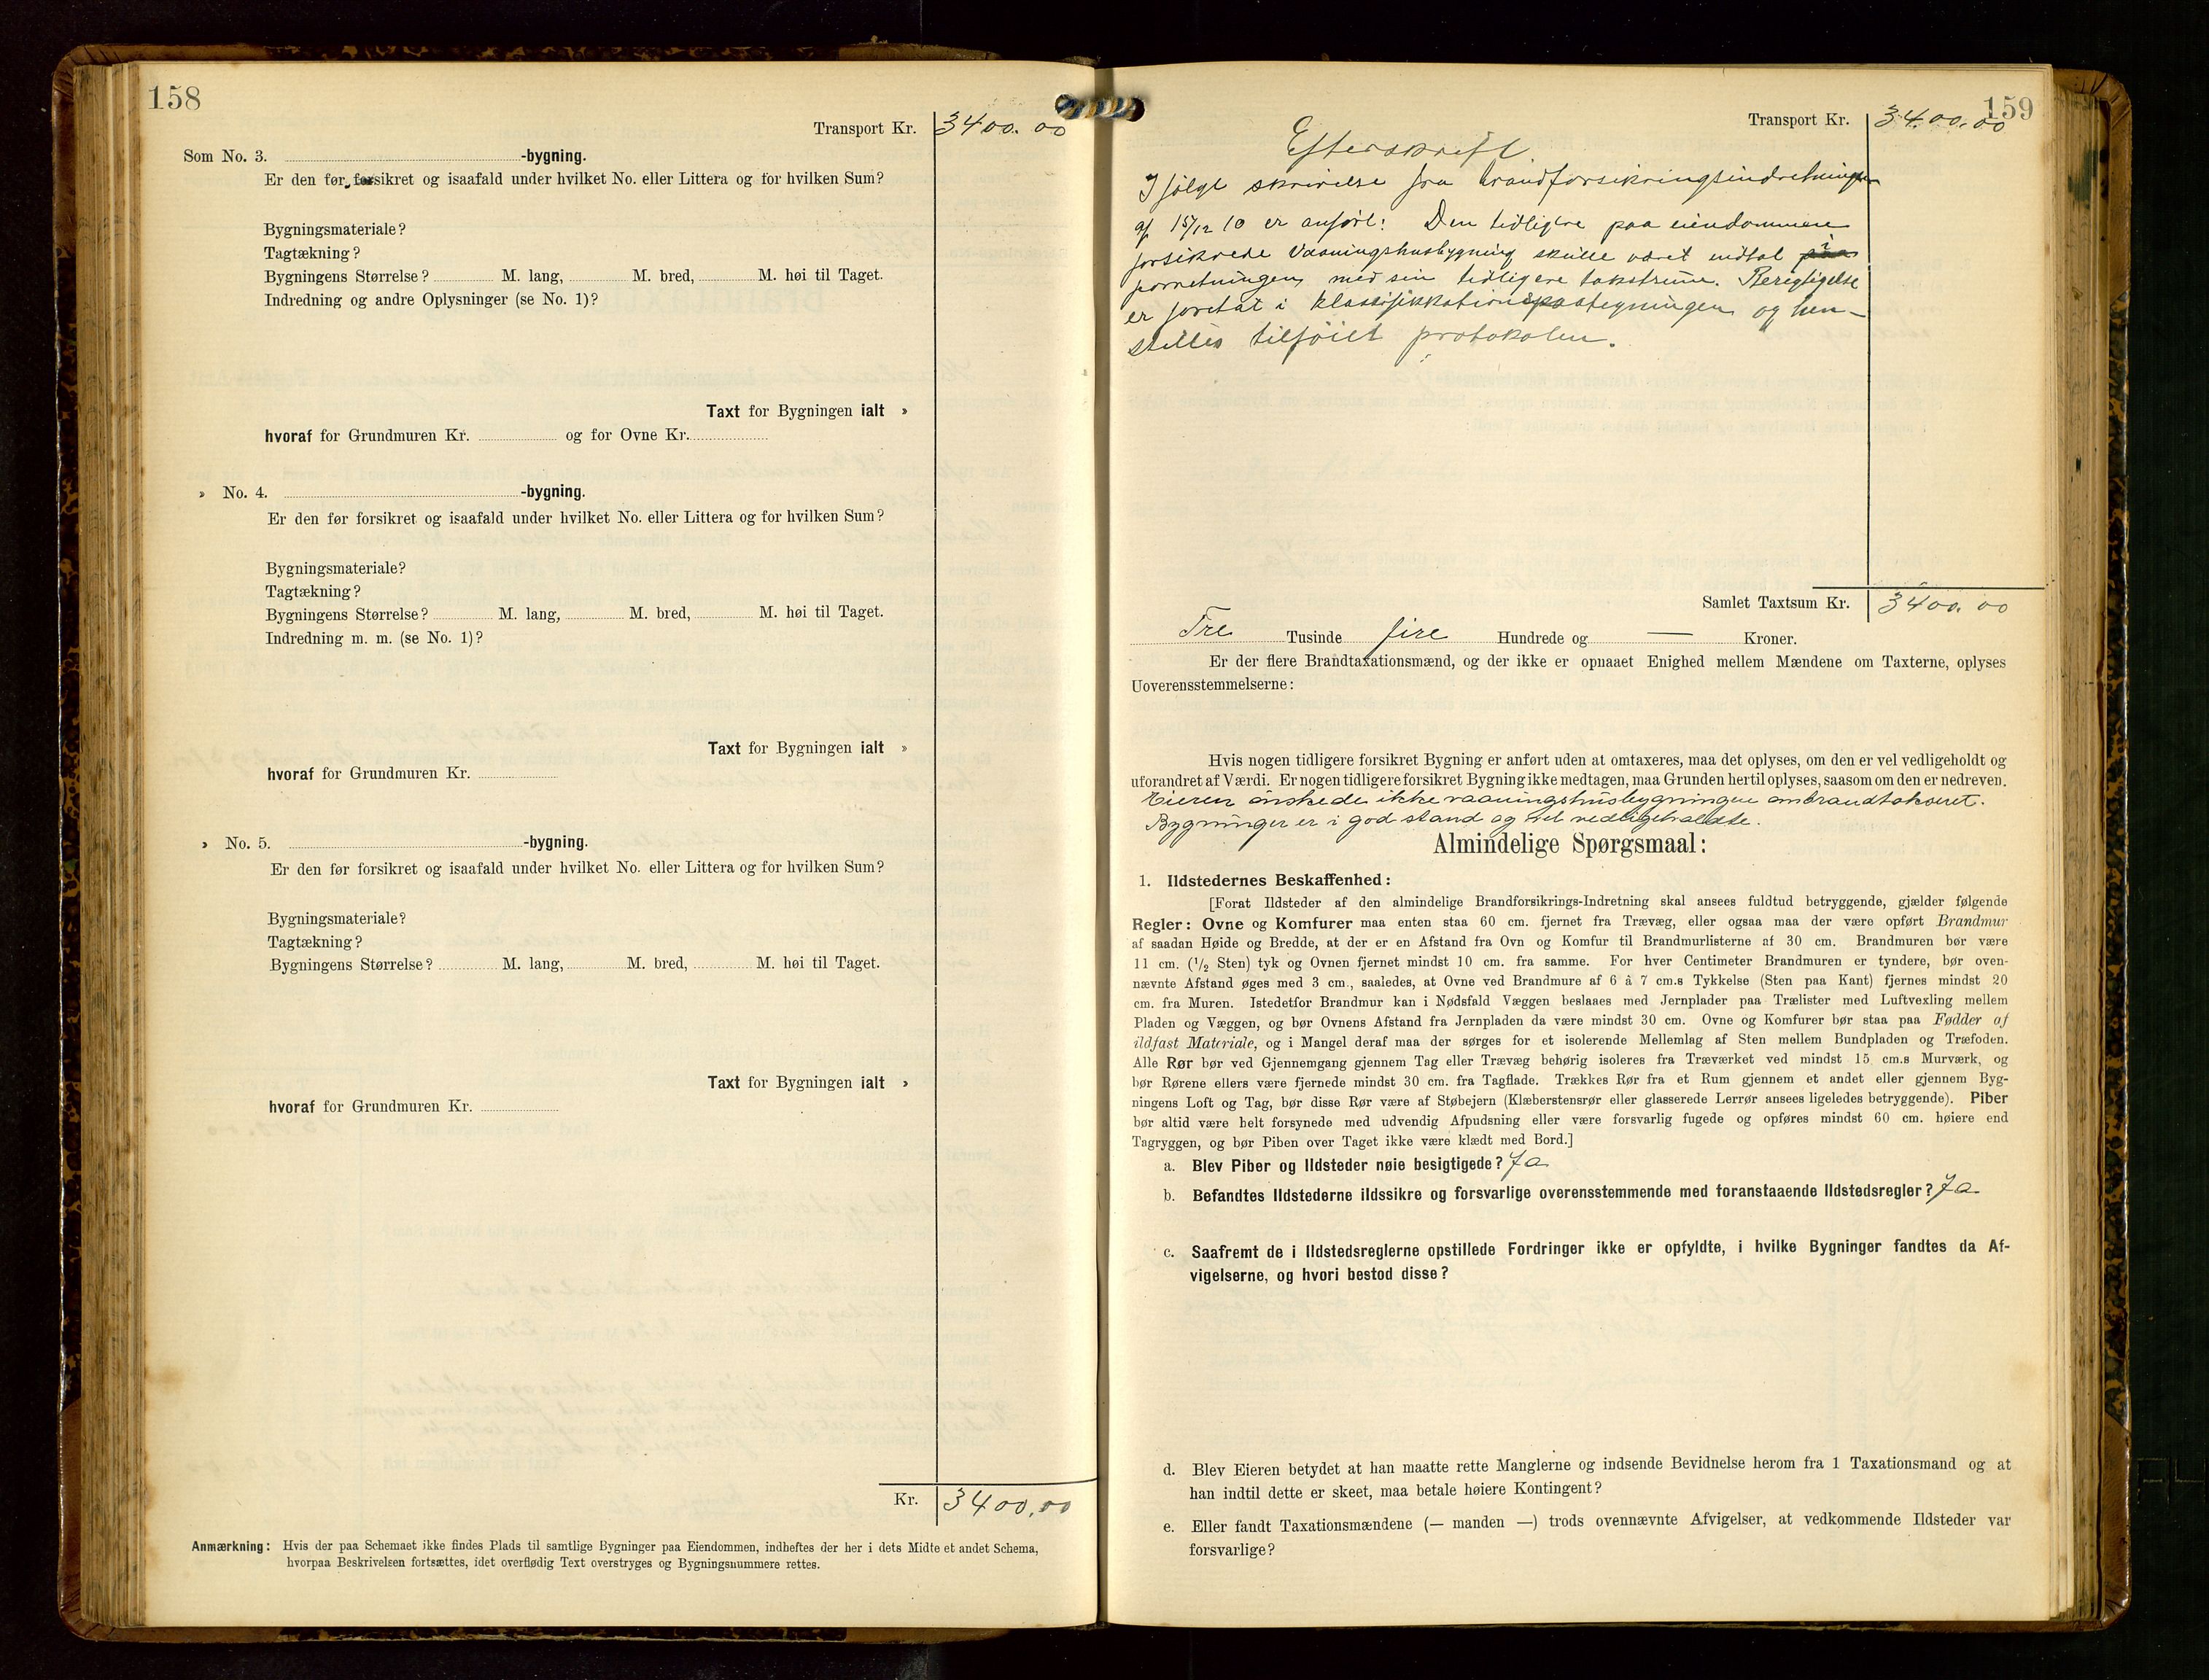 158
Transport Kr. 3400.00
Som No. 3. -bygning.
Er den før forsikret og isaafald under hvilket No. eller Littera og for hvilken Sum?
Bygningsmateriale?
Tagtækning?
Bygningens Størrelse? M. lang, M. bred, M. høi til Taget.
Indredning og andre Oplysninger (se No. 1)?
Taxt for Bygningen ialt »
hvoraf for Grundmuren Kr. og for Ovne Kr.
» No. 4. -bygning.
Er den før forsikret og isaafald under hvilket No. eller Littera og for hvilken Sum?
Bygningsmateriale?
Tagtækning?
Bygningens Størrelse? M. lang, M. bred, M. høi til Taget.
Indredning m. m. (se No. 1)?
Taxt for Bygningen ialt »
hvoraf for Grundmuren Kr.
» No. 5. -bygning.
Er den før forsikret og isaafald under hvilket No. eller Littera og for hvilken Sum?
Bygningsmateriale?
Tagtækning?
Bygningens Størrelse? M. lang, M. bred, M. høi til Taget.
Taxt for Bygningen ialt »
hvoraf for Grundmuren Kr.
Kr. 3400,00
Anmærkning: Hvis der paa Schemaet ikke findes Plads til samtlige Bygninger paa Eiendommen, indheftes der her i dets Midte et andet Schema,
hvorpaa Beskrivelsen fortsættes, idet overflødig Text overstryges og Bygningsnummere rettes.
159
Transport Kr. 3400.00
Efterskrift
Ifølge skrivelse fra brandforsikringsindretningen
af 15/12 10 er anført: Den tidligere paa eiendommen
forsikrede Vaaningshusbygning skulle været indtat i
forretningen med sin tidligere takstsum. Berigtigelse
er foretat i klassifikkationspaategningen og hen-
stilles tilføiet protokolen.
Samlet Taxtsum Kr. 3400.00
Tre Tusinde fire Hundrede og — Kroner.
Er der flere Brandtaxationsmænd, og der ikke er opnaaet Enighed mellem Mændene om Taxterne, oplyses
Uoverensstemmelserne:
Hvis nogen tidligere forsikret Bygning er anført uden at omtaxeres, maa det oplyses, om den er vel vedligeholdt og
uforandret af Værdi. Er nogen tidligere forsikret Bygning ikke medtagen, maa Grunden hertil oplyses, saasom om den er nedreven.
Eieren ønskede ikke vaaningshusbygningen ombrandtakseret.
Bygninger er i god stand og vel vedligeholdte.
Almindelige Spørgsmaal:
1. Ildstedernes Beskaffenhed:
[Forat Ildsteder af den almindelige Brandforsikrings-Indretning skal ansees fuldtud betryggende, gjælder følgende
Regler: Ovne og Komfurer maa enten staa 60 cm. fjernet fra Trævæg, eller ogsaa maa der være opført Brandmur
af saadan Høide og Bredde, at der er en Afstand fra Ovn og Komfur til Brandmurlisterne af 30 cm. Brandmuren bør være
11 cm. (1/2 Sten) tyk og Ovnen fjernet mindst 10 cm. fra samme. For hver Centimeter Brandmuren er tyndere, bør oven-
nævnte Afstand øges med 3 cm., saaledes, at Ovne ved Brandmure af 6 à 7 cm.s Tykkelse (Sten paa Kant) fjernes mindst 20
cm. fra Muren. Istedetfor Brandmur kan i Nødsfald Væggen beslaaes med Jernplader paa Trælister med Luftvexling mellem
Pladen og Væggen, og bør Ovnens Afstand fra Jernpladen da være mindst 30 cm. Ovne og Komfurer bør staa paa Fødder af
ildfast Materiale, og i Mangel deraf maa der sørges for et isolerende Mellemlag af Sten mellem Bundpladen og Træfoden.
Alle Rør bør ved Gjennemgang gjennem Tag eller Trævæg behørig isoleres fra Træværket ved mindst 15 cm.s Murværk, og
bør Rørene ellers være fjernede mindst 30 cm. fra Tagflade. Trækkes Rør fra et Rum gjennem et andet eller gjennem Byg-
ningens Loft og Tag, bør disse Rør være af Støbejern (Klæberstensrør eller glasserede Lerrør ansees ligeledes betryggende). Piber
bør altid være helt forsynede med udvendig Afpudsning eller være forsvarlig fugede og opføres mindst 60 cm. høiere end
Tagryggen, og bør Piben over Taget ikke være klædt med Bord.]
a. Blev Piber og Ildsteder nøie besigtigede? Ja
b. Befandtes Ildstederne ildssikre og forsvarlige overensstemmende med foranstaaende Ildstedsregler? Ja
c. Saafremt de i Ildstedsreglerne opstillede Fordringer ikke er opfyldte, i hvilke Bygninger fandtes da Af-
vigelserne, og hvori bestod disse?
d. Blev Eieren betydet at han maatte rette Manglerne og indsende Bevidnelse herom fra 1 Taxationsmand og at
han indtil dette er skeet, maa betale høiere Kontingent?
e. Eller fandt Taxationsmændene (— manden —) trods ovennævnte Afvigelser, at vedkommende Ildsteder var
forsvarlige?